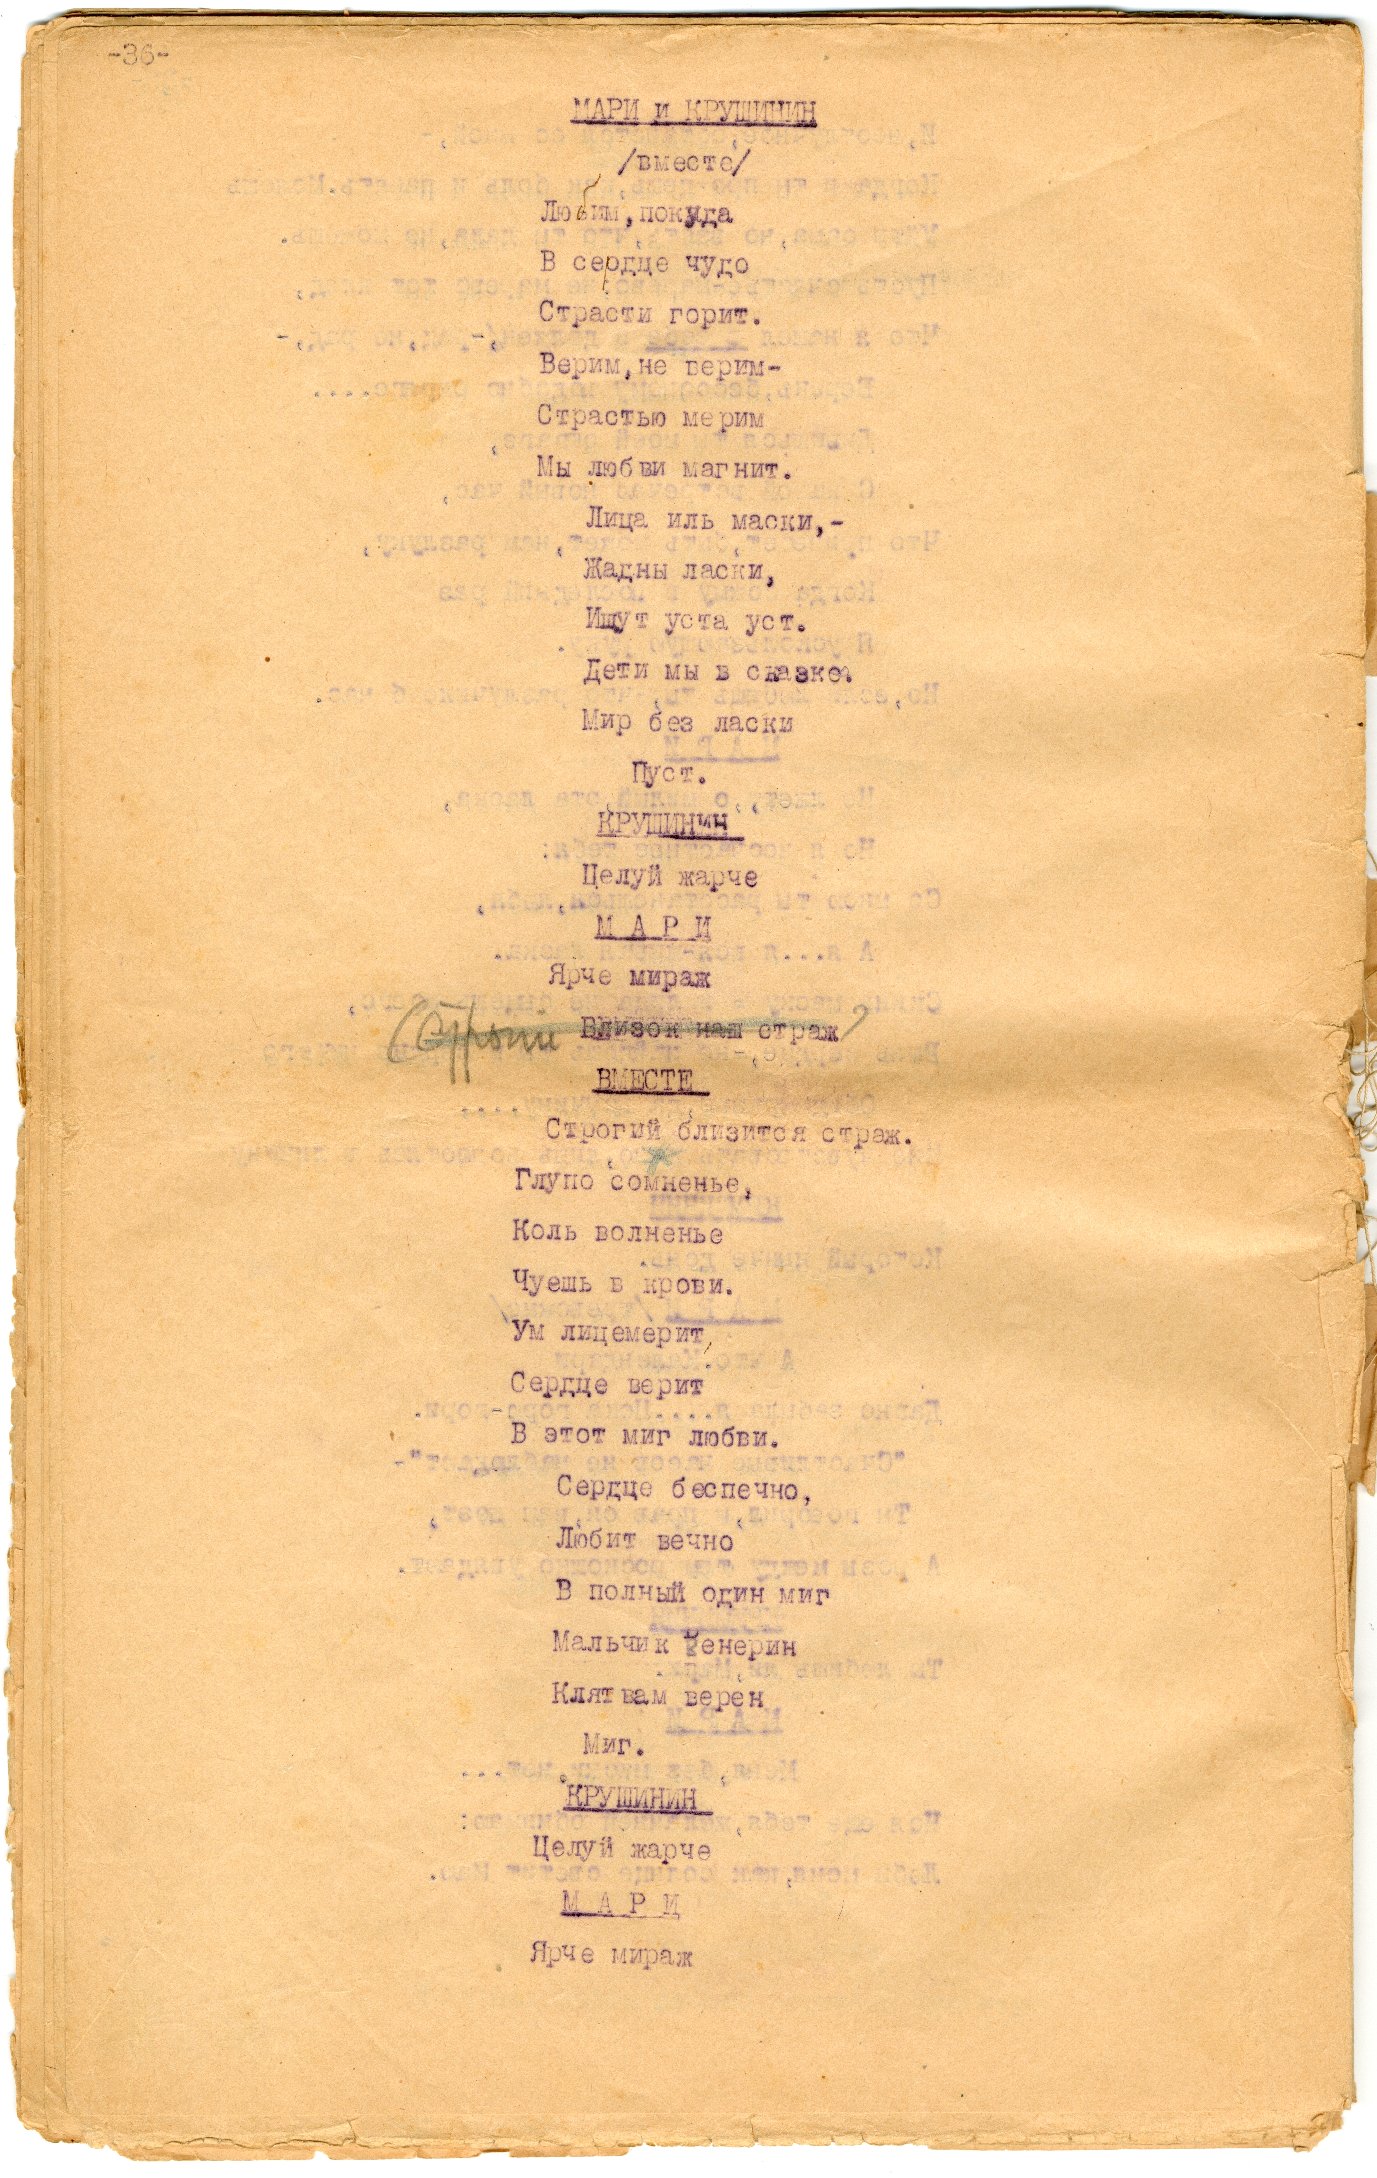 -36-
МАРИ и КРУШИНИН
/вместе/
Любим, покуда
В сердце чудо
Страсти горит.
Верим, не верим-
Страстью мерим
Мы любви магнит.
Лица иль маски,-
Жадны ласки,
Ищут уста уст.
Дети мы в сказке.
Мир без ласки
Пуст.
КРУШИНИН
Целуй жарче
М А Р И
Ярче мираж
Близок наш страж
ВМЕСТЕ
Строгий близится страж.
Глупо сомненье,
Коль волненье
Чуешь в крови.
Ум лицемерит,
Сердце верит
В этот миг любви.
Сердце беспечно,
Любит вечно
В полный один миг
Мальчик Венерин
Клятвам верен
Миг.
КРУШИНИН
Целуй жарче
М А Р И
Ярче мираж